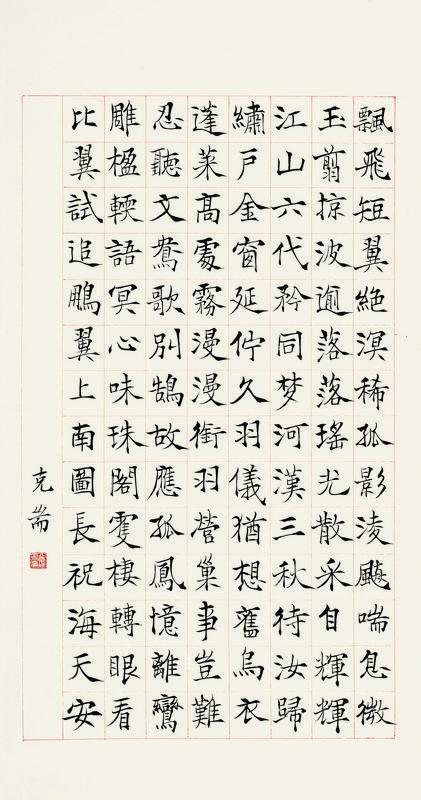 飄飛短翼絕溟稀孤影淩飈喘息微
玉翦掠波逾落落瑤光散采自輝輝
江山六代矜同梦河漢三秋待汝歸
繡戶金窗延佇久羽儀猶想舊烏衣
蓬萊高處霧漫漫銜羽營巢事豈難
忍聽文鴛歌別鵠故應孤鳳憶離鸞
雕楹輭語冥心味珠閣雙棲轉眼看
比翼試追鵬翼上南圖長祝海天安
克耑